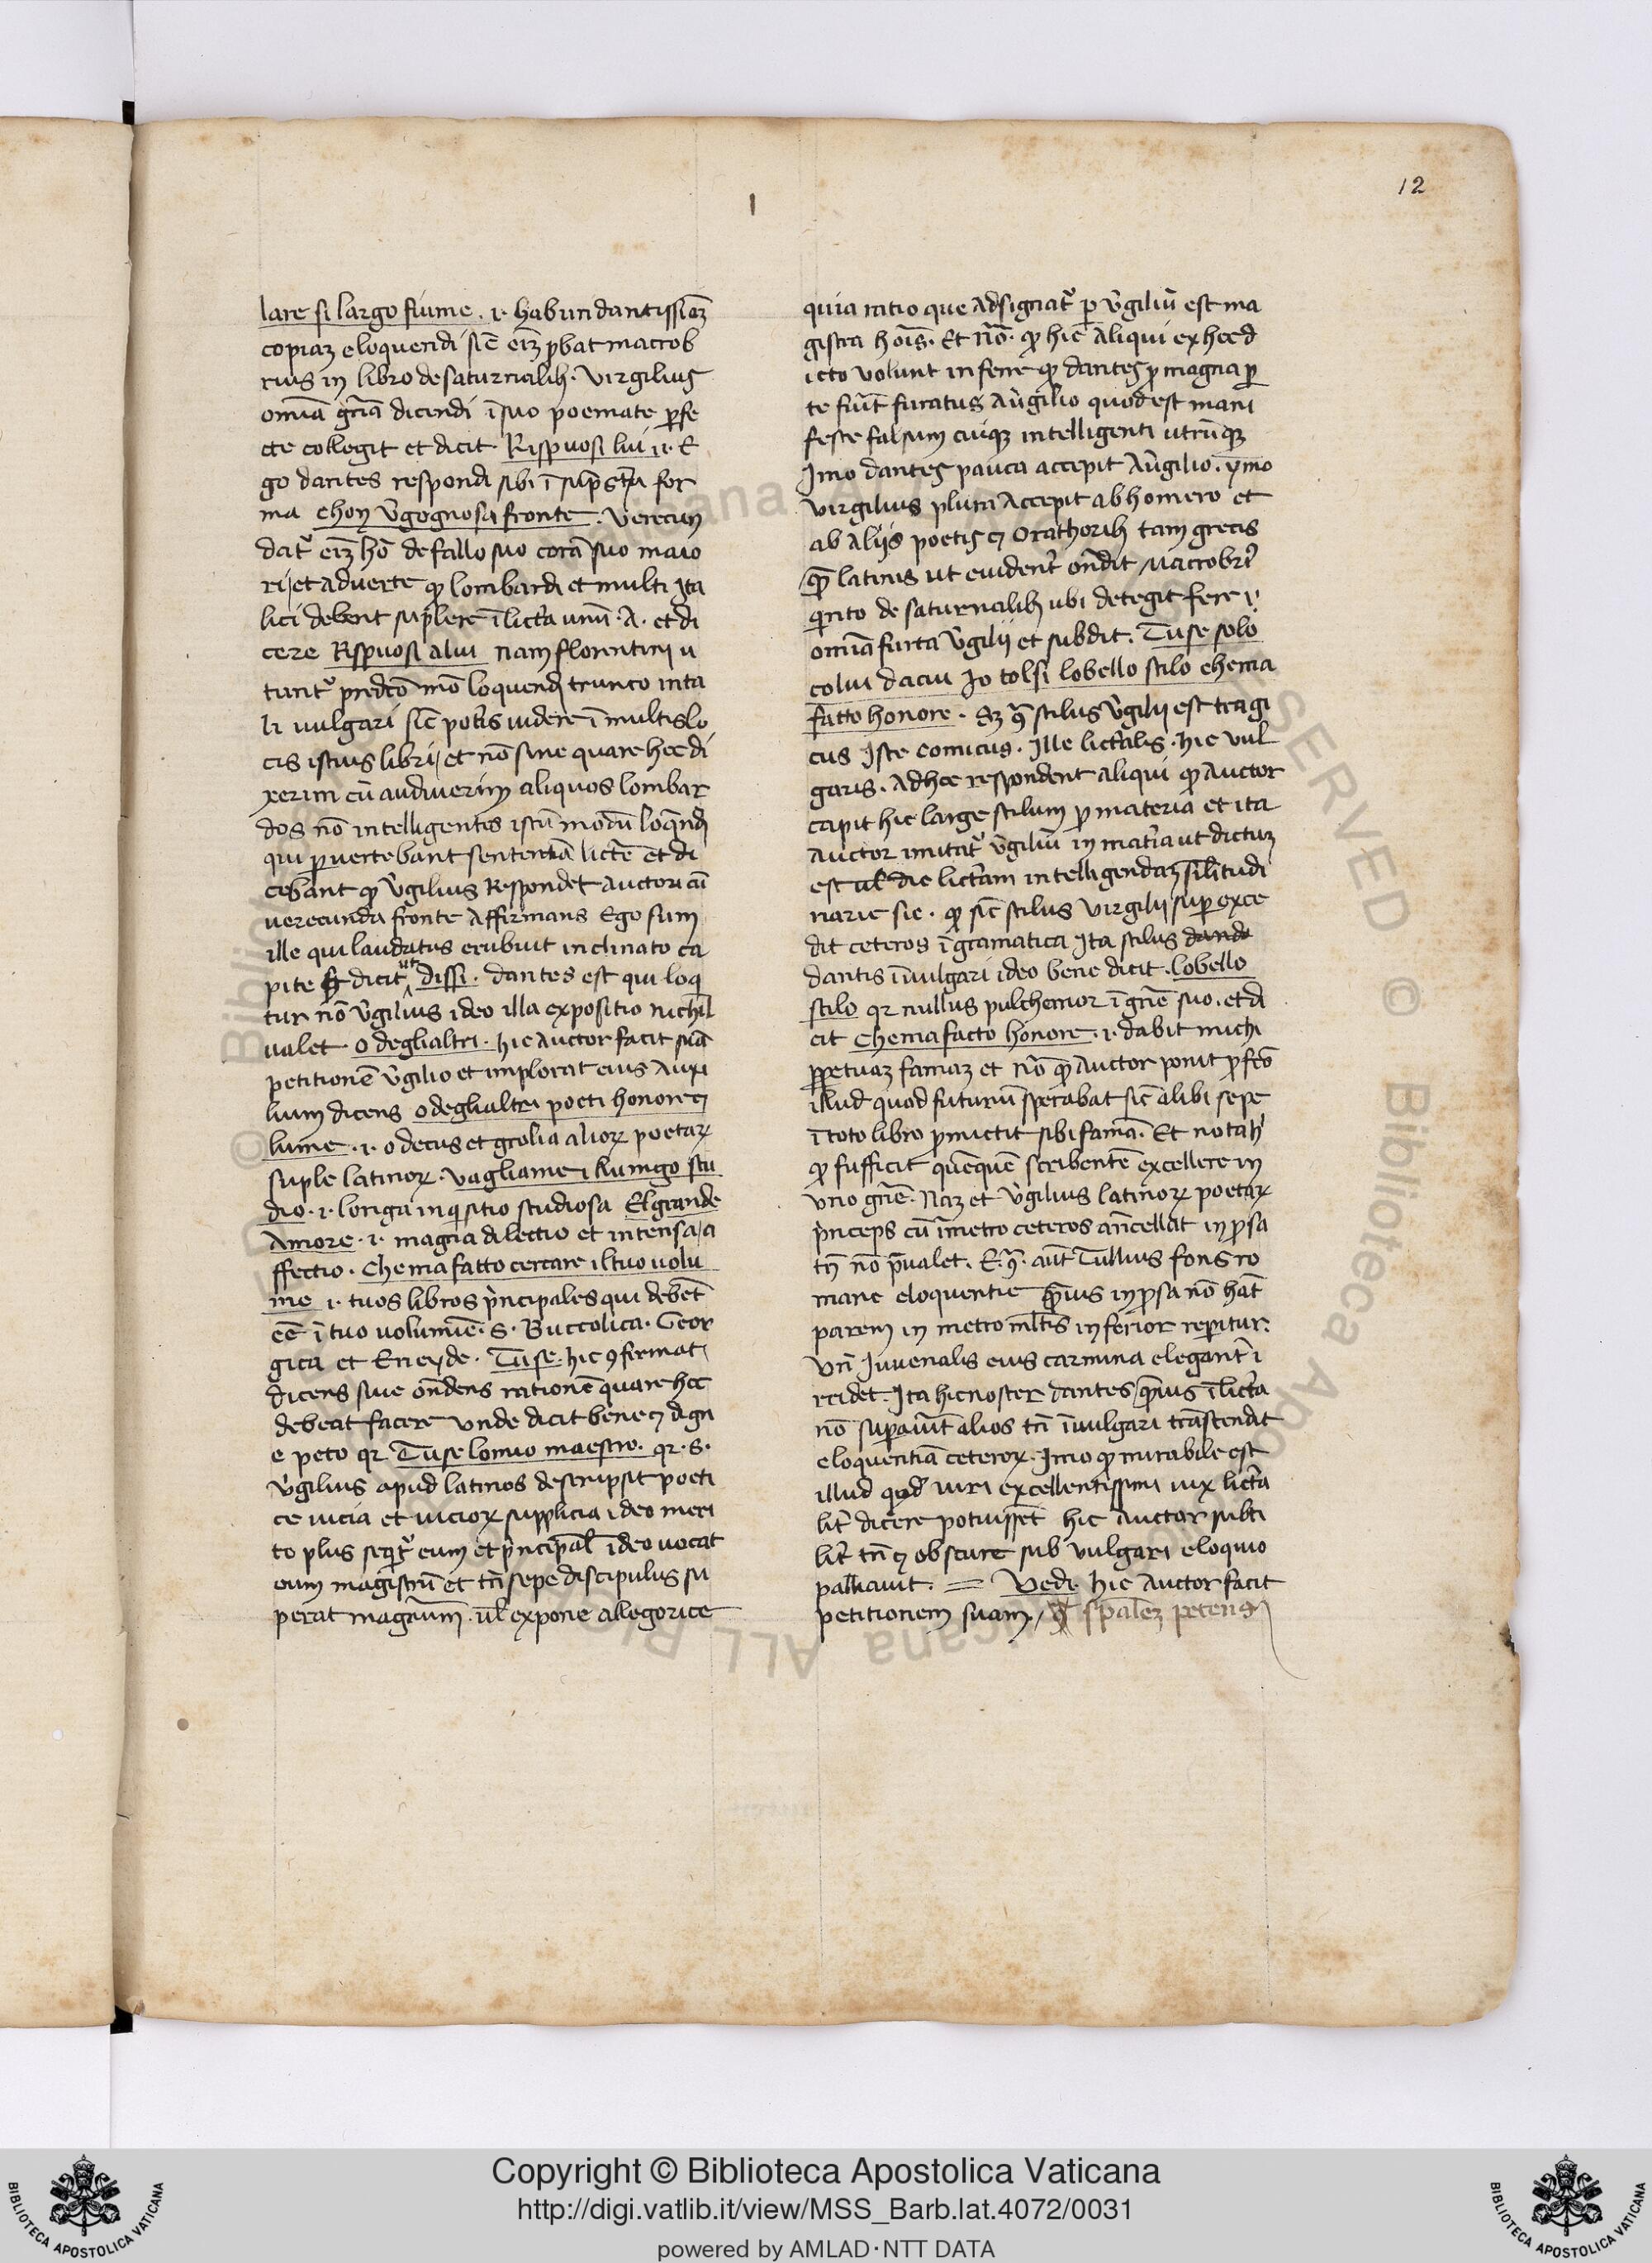 12
lare si largo fiume .i. habundantissiaz
copiaz eloquendi sic̄ eīz ꝓbat macrob
rius in libro de saturnalib. Virgilius
om̄ia gn̄a dicendi ī suo poemate ꝑfe
cte collegit et dicit Rispuosi lui .i. E
go dantes respondi sibi ī supͣscͥta for
ma chon v̓gognosa fronte. Verecun
datᷣ eīz hō de fallo suo corā suo maio
ri / et adverte ꝙ lombardi et multi Ita
lici debent suplere ī licta unū .A. et di
cere Rispuosi a lui nam florentini u
tuntᷣ predc̄o mō loquendi trunco in ta
li vulgari sic̄ potis videre ī multis lo
cis istius libri / et nō sine quare hec di
xerim cū audiverim aliquos lombar
dos nō intelligentes istū modū loq̄ndi
qui ꝑvertebant sententiā licte et di
cebant ꝙ v̓gilius Respondet auctori cū
verecunda fronte affirmans Ego sum
ille qui laudatus erubuit inclinato ca
pite dicit ut dissi. dantes est qui loqͥ
tur nō v̓gilius ideo illa expositio nichil
valet. O deglialtri. hic auctor facit suā
petitionē v̓gilio et implorat eius auxi
lium dicens o deglialtri poeti honore ⁊
lume .i. o decus et grolia alioꝝ poetaꝝ
suple latinoꝝ. vagliame i lumgo stu
dio .i. longa inqͥsitio studiosa El grande
Amore .i. magna dilectio et intensa a
ffectio. Che ma fatto cercare il tuo volu
me .i. tuos libros pͥncipales qui debēt
eē ī tuo volumīe .s. Buccolica. Geor
gica et Eneyde. Tu se. hic ꝯfirmat
dicens sive on̄dens rationē quare hec
debeat facere unde dicit bene ⁊ dign
e peto qꝛ Tu se lo mio maestro. qꝛ .s.
v̓gilius apud latinos descripsit poeti
ce vicia et vicioꝝ supplicia ideo meri
to plus seqͥtᷣ eum et pͥncipal̄ ideo vocat
eum magistrū et tn̄ sepe discipulus su
perat magrūm. ul̄ expone allegorice
quia ratio que adsignatᷣ ꝑ v̓giliū est ma
gistra hoīs. Et nō. ꝙ hic aliqui ex hec d
icto volunt inferre ꝙ dantes ꝓ magna ꝑ
te fuit furatus a v̓gilio quod est mani
feste falsum cuiqꝫ intelligenti utrūqꝫ
Imo dantes pauca accepit a v̓gilio. ymo
virgilius plura accepit ab homero et
ab aliis poetis ⁊ orathorib tam grecis
qͣ̄ latinis ut evidentᷣ on̄dit macrobiᷣ
qͥnto de saturnalib ubi detegit fere
om̄ia furta v̓gilii et subdit. Tu se solo
colui da cui Io tolsi lo bello stilo che ma
fatto honore. Sꝫ qͣ̄ stilus v̓gilii est tragi
cus Iste comicus. Ille lictalis. hic vul
garis. Ad hec respondent aliqui ꝙ auctor
capit hic large stilum ꝓ materia et ita
auctor imitatᷣ v̓giliū in matia ut dictuz
est ul̄ dic lictam intelligendaz similitudi
narie sic. ꝙ sic̄ stilus virgilii supexce
dit ceteros ī gramatica Ita stilus dande
dantis ī vulgari ideo bene dicit. lo bello
stilo qꝛ nullus pulchrior ī gn̄e suo. et di
cit che ma facto honore .i. dabit michi
ꝑpetuaz famaz et nō qͣ̄ auctor ponit ꝓ fcō
illud quod futurū sperabat sic̄ alibi sepe
ī toto libro ꝓmictit sibi famā. Et notab
ꝙ sufficit quēquē scribentē excellere in
uno gn̄e. Naz et v̓gilius latinoꝝ poetaꝝ
pͥnceps cū ī metro ceteros antcellat in ꝓsa
tn̄ nō p̄valet. E. ꝯͣ. aūt Tullius fons ro
mane eloquentie qͣ̄vis in ꝓsa nō hāt
parem in metro ml̄tis inferior reperitur.
Un̄ Iuvenalis eius carmina elegantᷣ i
rridet. Ita hic noster dantes qͣ̄vis ī licta
nō supavīt alios tn̄ ī vulgari trāscendit
eloquentiā ceteroꝝ. Imo ꝙ mirabile est
illud qd̄ viri excellentissimi vix licta
litᷣ dicere potuissēt hic auctor subti
litᷣ tn̄ ⁊ obscure sub vulgari eloquio
palliavit. = Vedi. hic auctor facit
petitionem suam spalez petens
Copyright © Biblioteca Apostolica Vaticana
http://digi.vatlib.it/view/MSS_Barb.lat.4072/0031
powered by AMLAD·NTT DATA